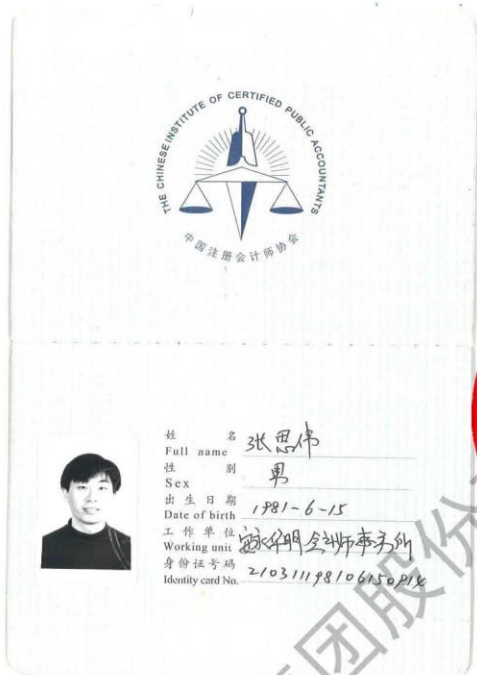 THE CHINESE INSTITUTE OF CERTIFIED PUBLIC ACCOUNTANTS
中国注册会计师协会
姓 名 张思伟
Full name
性 别 男
Sex
出生日期 1981-6-15
Date of birth
工作单位 安永华明会计师事务所
Working unit
身份证号码
Identity card No.
集团股份